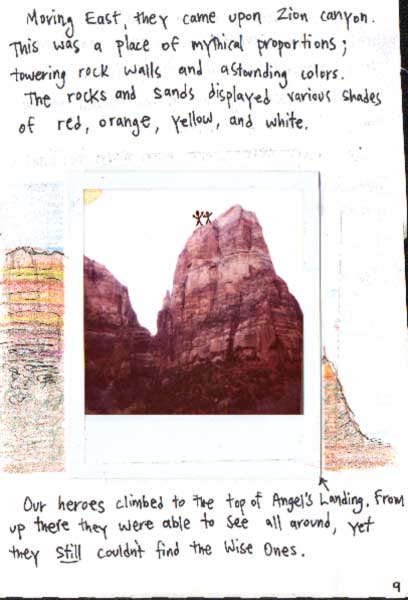 Moving East, they came upon Zion canyon.
This was a place of mythical proportions;
towering rock walls and astounding colors.
The rocks and sands displayed various shades
of red, orange, yellow, and white.
Our heroes climbed to the top of Angel's Landing. From
up there they were able to see all around, yet
they still couldn't find the Wise Ones.
9